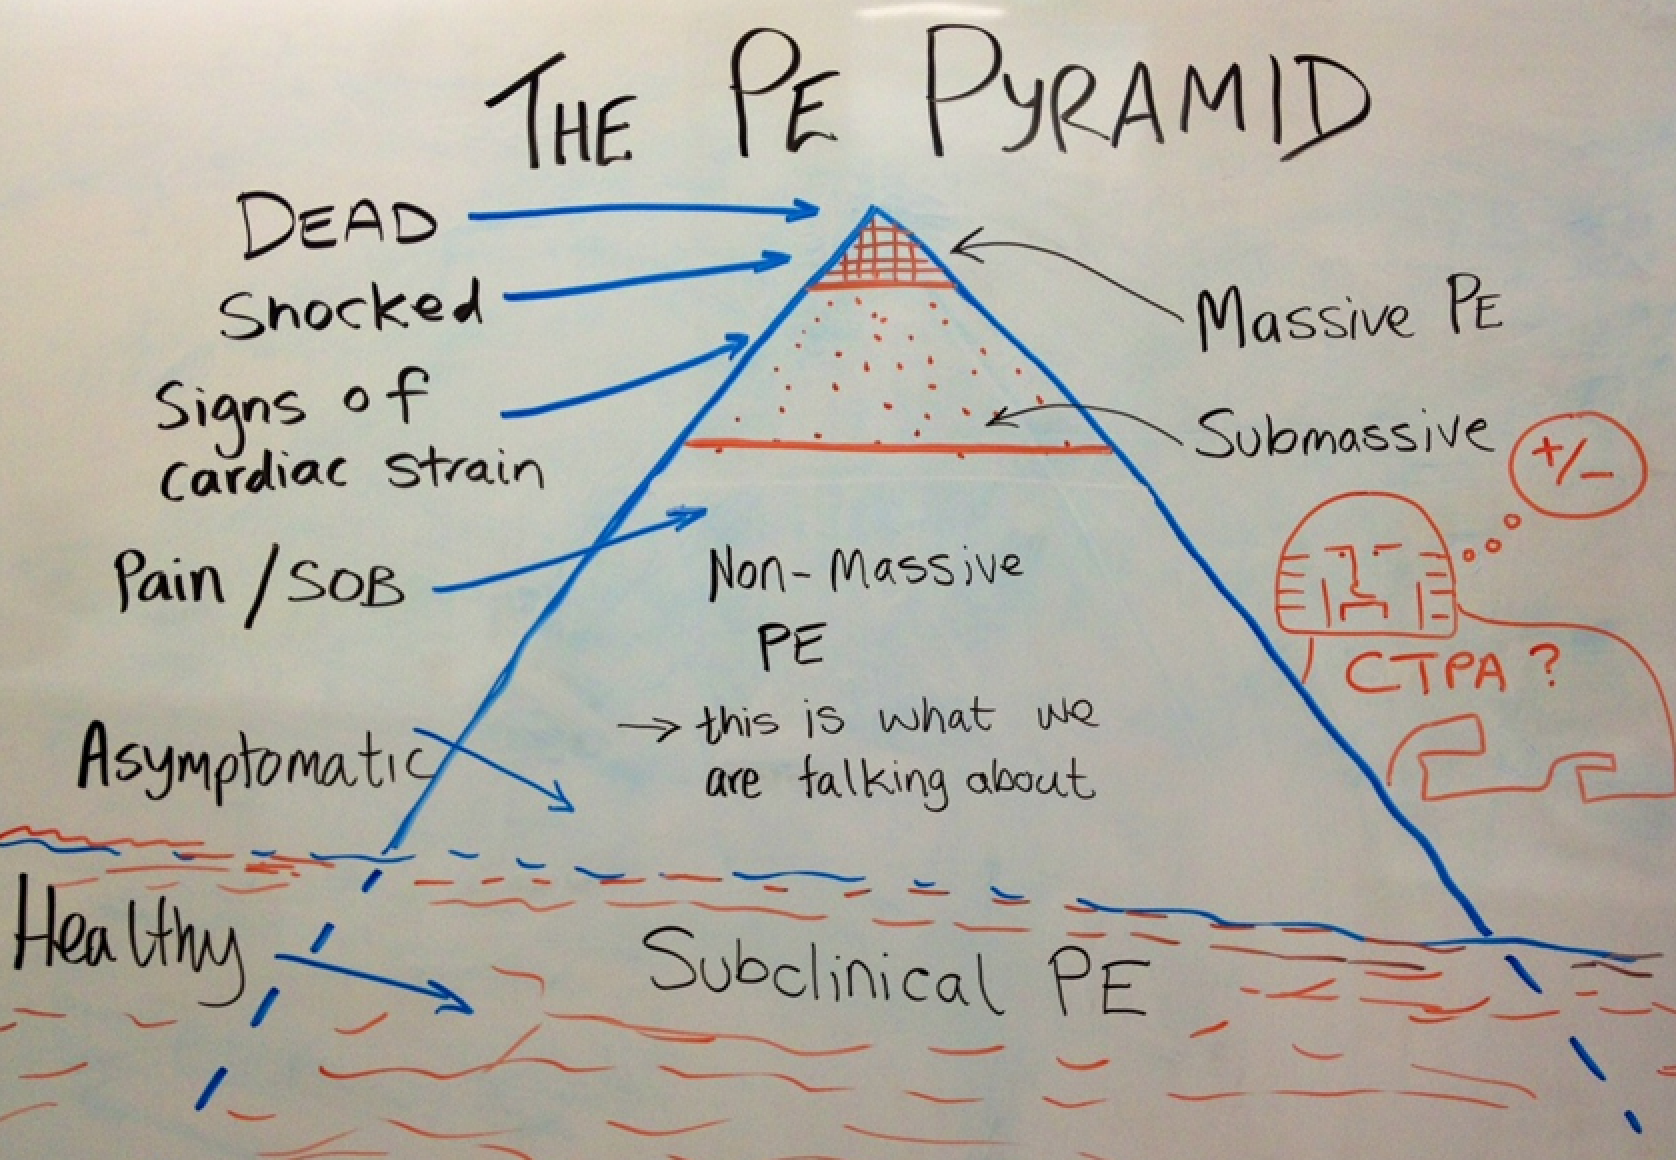 THE PE PYRAMID
DEAD
Shocked
Signs of
cardiac strain
Pain / SOB
Asymptomatic
Healthy
Massive PE
Submassive
+/-
CTPA ?
Non-Massive
PE
→ this is what we
are talking about
Subclinical PE